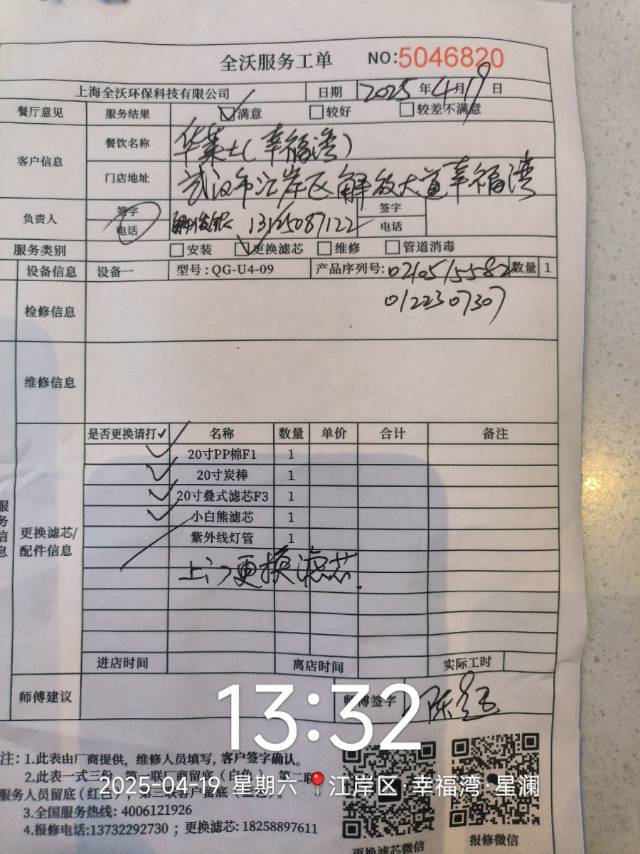 全沃服务工单 NO:5046820
上海全沃环保科技有限公司 日期 2025年4月19
餐厅意见 服务结果 ☑满意 □较好 □较差不满意
客户信息 餐饮名称 华莱士(幸福湾)
门店地址 武汉市江岸区解放大道幸福湾
负责人 签字 电话 签字 电话
服务类别 □安装 ☑更换滤芯 □维修 □管道消毒
设备信息 设备一 型号:QG-U4-09 产品序列号:0210515582 数量 1
0122307307
检修信息
维修信息
是否更换请打✓ 名称 数量 单价 合计 备注
✓ 20寸PP棉F1 1
✓ 20寸炭棒 1
✓ 20寸叠式滤芯F3 1
✓ 小白熊滤芯 1
紫外线灯管 1
更换滤芯/
配件信息
上门更换滤芯
进店时间 离店时间 实际工时
师傅建议 师傅签字
13:32
注: 1.此表由厂商提供, 维修人员填写, 客户签字确认。
2.此表一式三份
服务人员留底
2025-04-19 星期六 江岸区·幸福湾·星澜
3.全国服务热线: 4006121926
4.报修电话:13732292730; 更换滤芯: 18258897611
更换滤芯微信 报修微信